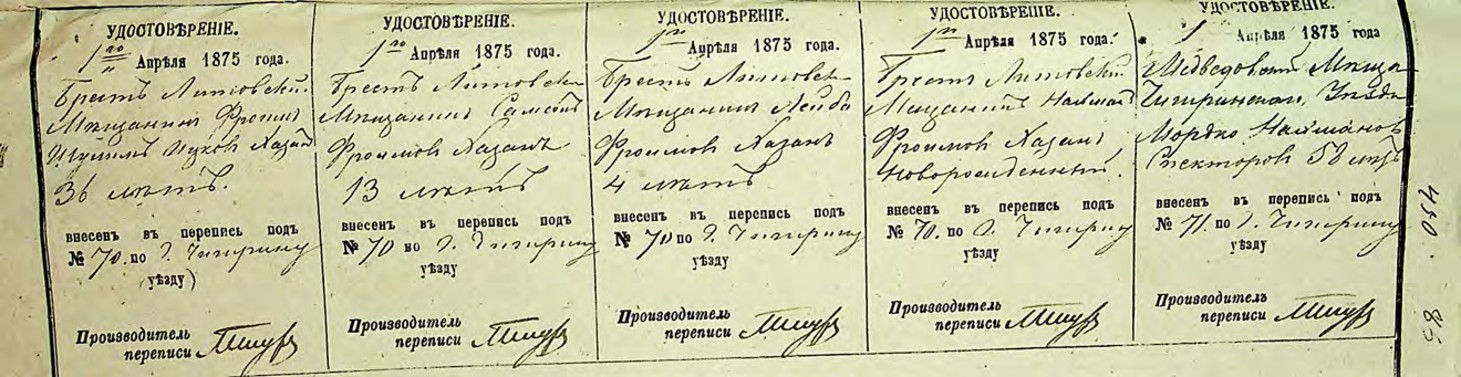 УДОСТОВѢРЕНІЕ.
1го Апрѣля 1875 года.
Брестъ Литовскій
Мѣщанинъ Фроимъ
Ицковъ Хазанъ
36 лѣтъ.
внесенъ въ перепись подъ
№ 70. по г. Чигирину
(уѣзду)
Производитель
переписи
УДОСТОВѢРЕНІЕ.
1го Апрѣля 1875 года.
Брестъ Литовскій
Мѣщанинъ Самсонъ
Фроимовъ Хазанъ
13 лѣтъ
внесенъ въ перепись подъ
№ 70 по г. Чигирину
уѣзду
Производитель
переписи
УДОСТОВѢРЕНІЕ.
1го Апрѣля 1875 года.
Брестъ Литовскій
Мѣщанинъ Лейба
Фроимовъ Хазанъ
4 лѣтъ
внесенъ въ перепись подъ
№ 70 по г. Чигирину
уѣзду
Производитель
переписи
УДОСТОВѢРЕНІЕ.
1го Апрѣля 1875 года.
Брестъ Литовскій
Мѣщанинъ Нахманъ
Фроимовъ Хазанъ
Новорожденный.
внесенъ въ перепись подъ
№ 70. по г. Чигирину
уѣзду
Производитель
переписи
УДОСТОВѢРЕНІЕ.
1 Апрѣля 1875 года
Медведовскій Мѣща
Чигиринскаго Уѣзда
Мордко Нахмановъ
Спекторовъ 58 лѣтъ
внесенъ въ перепись подъ
№ 71. по г. Чигирину
уѣзду
Производитель
переписи
450
85